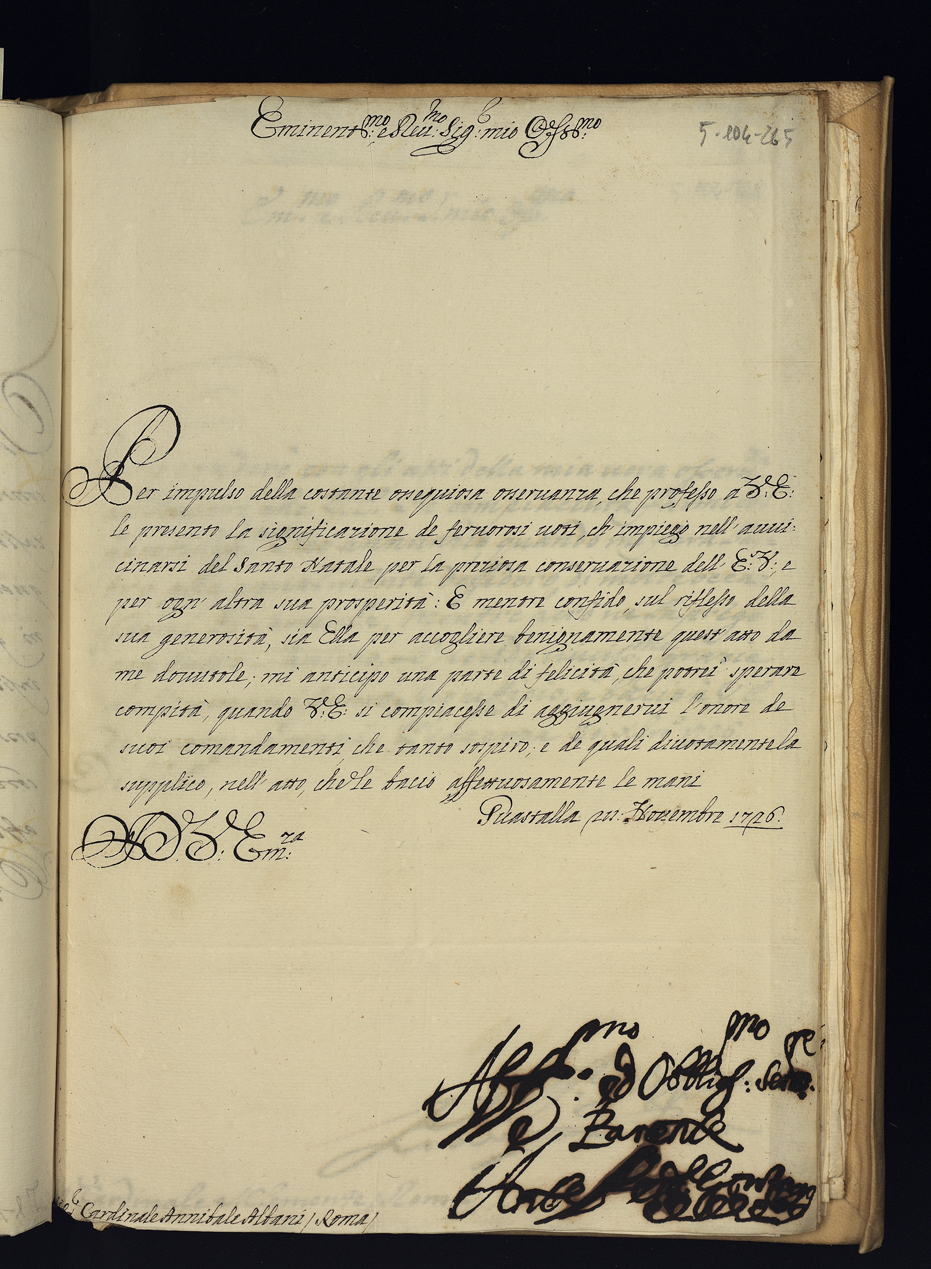 Eminent.mo e Reu.mo Sig.r mio Oss.mo
5-104-265
Per impulso della costante ossequiosa osseruanza, che professo a V: E:
le presento la significazione de feruorosi uoti, ch' impiego nell' auui:
cinarsi del Santo Natale per la preziosa conseruazione dell' E: V:, e
per ogn' altra sua prosperità: E mentre confido, sul riflesso della
sua generosità, sia Ella per accogliere benignamente quest' atto da
me douutole; mi anticipo una parte di felicità, che potrei sperare
compita, quando V: E: si compiacesse di aggiugnerui l'onore de
suoi comandamenti, che tanto sospiro, e de quali diuotamente la
supplico, nell' atto, che le bacio affettuosamente le mani
Guastalla Nouembre 1726.
D. V. Em.za
Aff.mo ed Obblig.mo Ser.re
e Parente
Cardinale Annibale Albani / Roma /